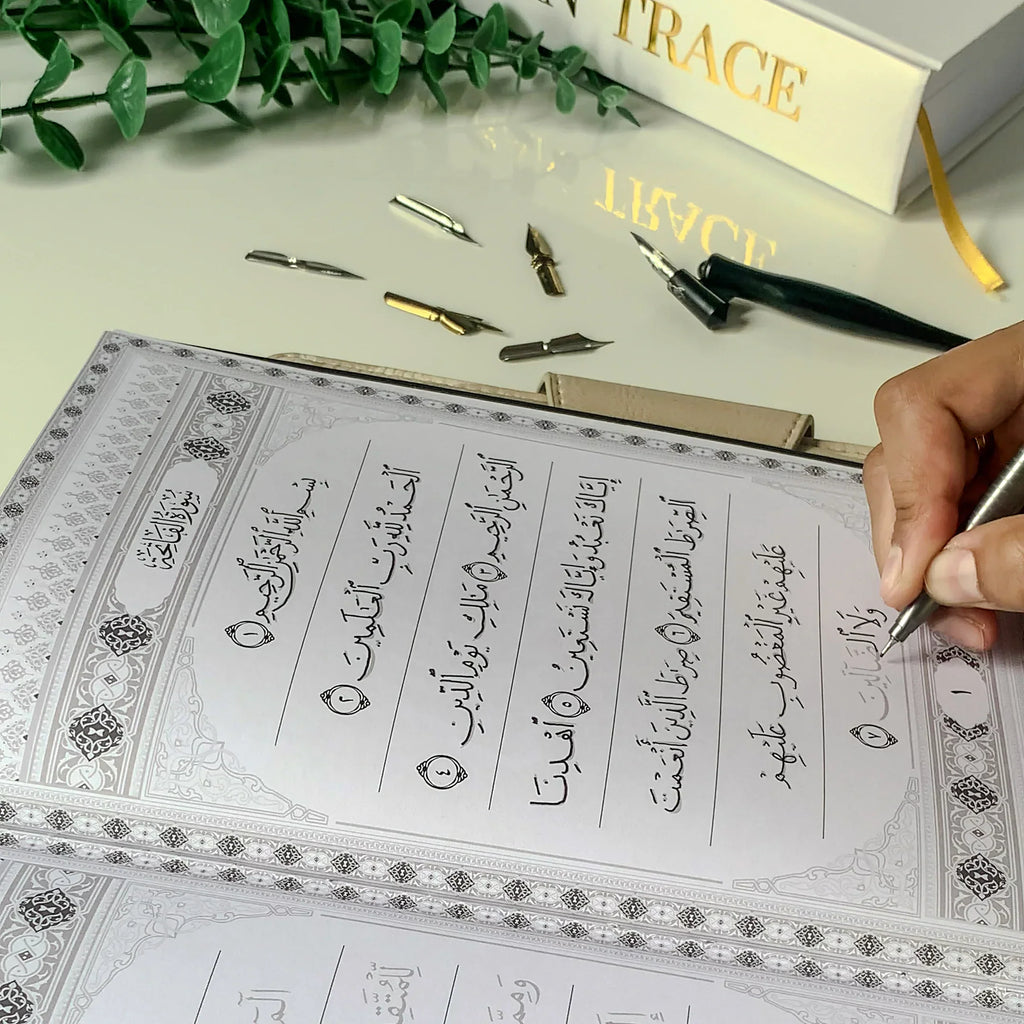 N TRACE
سُورَةُ الْفَاتِحَةِ
بِسْمِ اللَّهِ الرَّحْمَٰنِ الرَّحِيمِ ١
ٱلْحَمْدُ لِلَّهِ رَبِّ ٱلْعَالَمِينَ ٢
ٱلرَّحْمَٰنِ ٱلرَّحِيمِ ٣ مَٰلِكِ يَوْمِ ٱلدِّينِ ٤
إِيَّاكَ نَعْبُدُ وَإِيَّاكَ نَسْتَعِينُ ٥ ٱهْدِنَا
ٱلصِّرَٰطَ ٱلْمُسْتَقِيمَ ٦ صِرَٰطَ ٱلَّذِينَ أَنْعَمْتَ
عَلَيْهِمْ غَيْرِ ٱلْمَغْضُوبِ عَلَيْهِمْ
وَلَا ٱلضَّآلِّينَ ٧
١
لِّلْمُتَّقِينَ